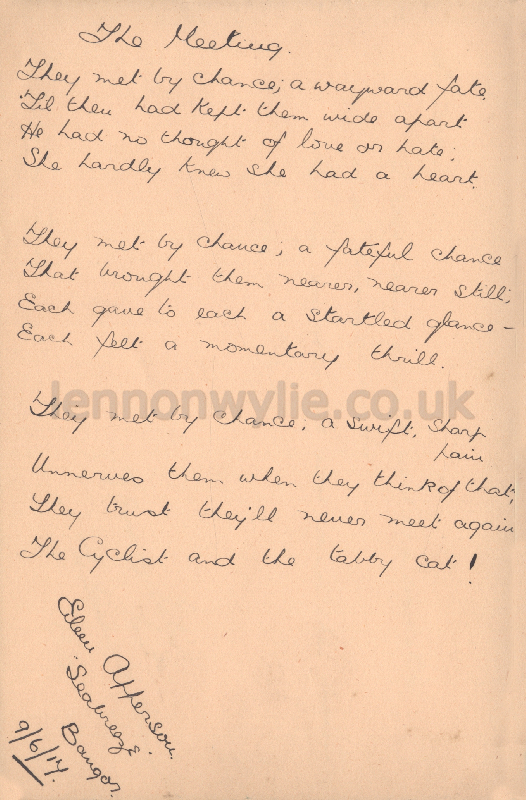 The Meeting.
They met by chance; a wayward fate,
'Til then had kept them wide apart
He had no thought of love or hate;
She hardly knew she had a heart.
They met by chance; a fateful chance
That brought them nearer, nearer still;
Each gave to each a startled glance –
Each felt a momentary thrill.
lennonwylie.co.uk
They met by chance; a swift, sharp
pain
Unnerves them when they think of that;
They trust they'll never meet again
The Cyclist and the tabby cat!
Eileen Apperson.
Seabreeze
Bangor.
9/6/14.